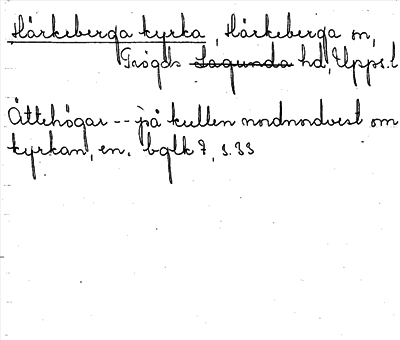 Härkeberga kyrka, Härkeberga sn,
Trögds Lagunda hd, Upps.l
Ättehögar -- på kullen nordnordvest om
kyrkan, en. bglk 7, s. 33